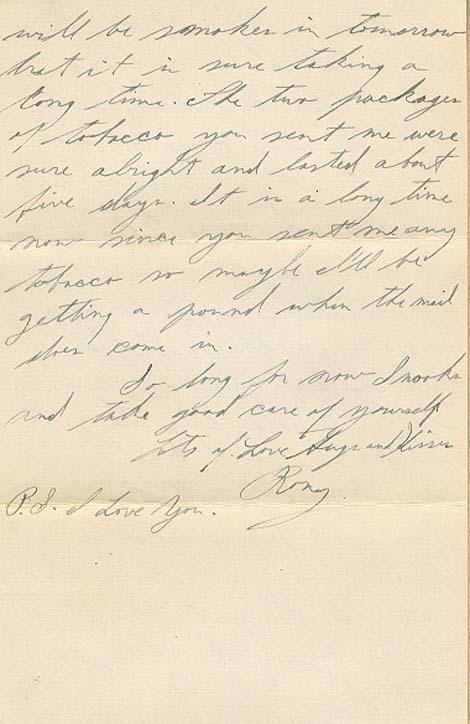 will be smokes in tomorrow
but it is sure taking a
long time. The two packages
of tobacco you sent me were
sure alright and lasted about
five days. It is a long time
now since you sent me any
tobacco so maybe I'll be
getting a pound when the mail
does come in.
So long for now Snooks
and take good care of yourself
Lots of Love Hugs and Kisses
P.S. I Love You.